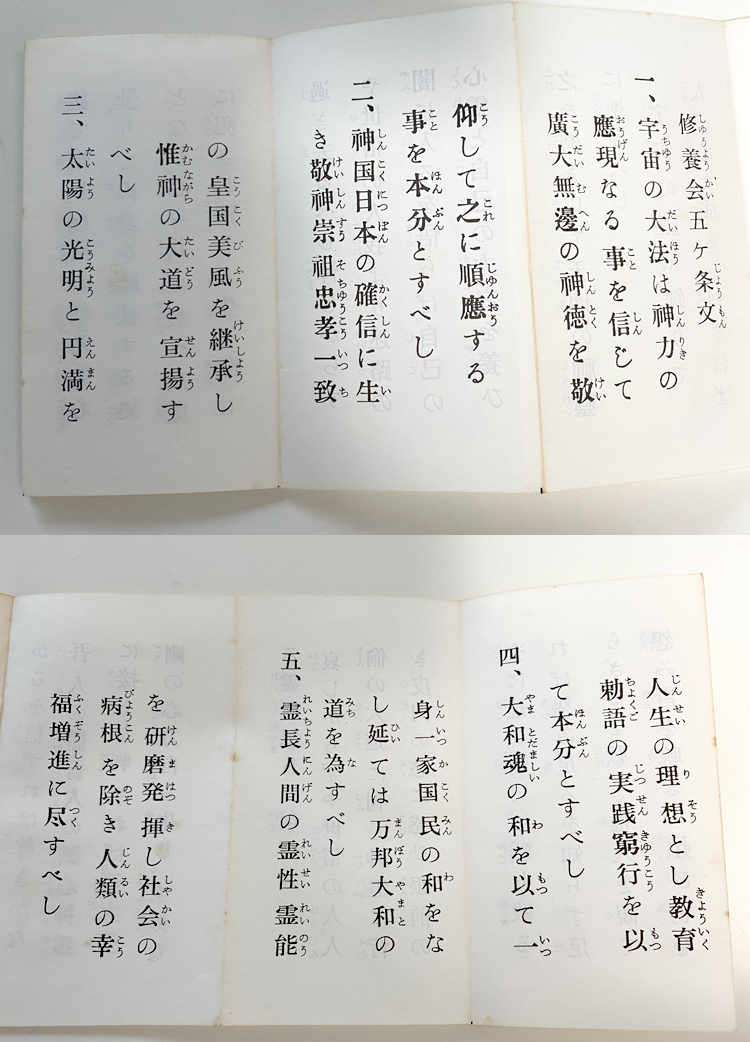 修養会五ケ条文
一、宇宙の大法は神力の
應現なる事を信じて
廣大無邊の神徳を敬
仰して之に順應する
事を本分とすべし
二、神国日本の確信に生
き敬神崇祖忠孝一致
の皇国美風を継承し
惟神の大道を宣揚す
べし
三、太陽の光明と円満を
人生の理想とし教育
勅語の実践窮行を以
て本分とすべし
四、大和魂の和を以て一
身一家国民の和をな
し延ては万邦大和の
道を為すべし
五、霊長人間の霊性霊能
を研磨発揮し社会の
病根を除き人類の幸
福増進に尽すべし